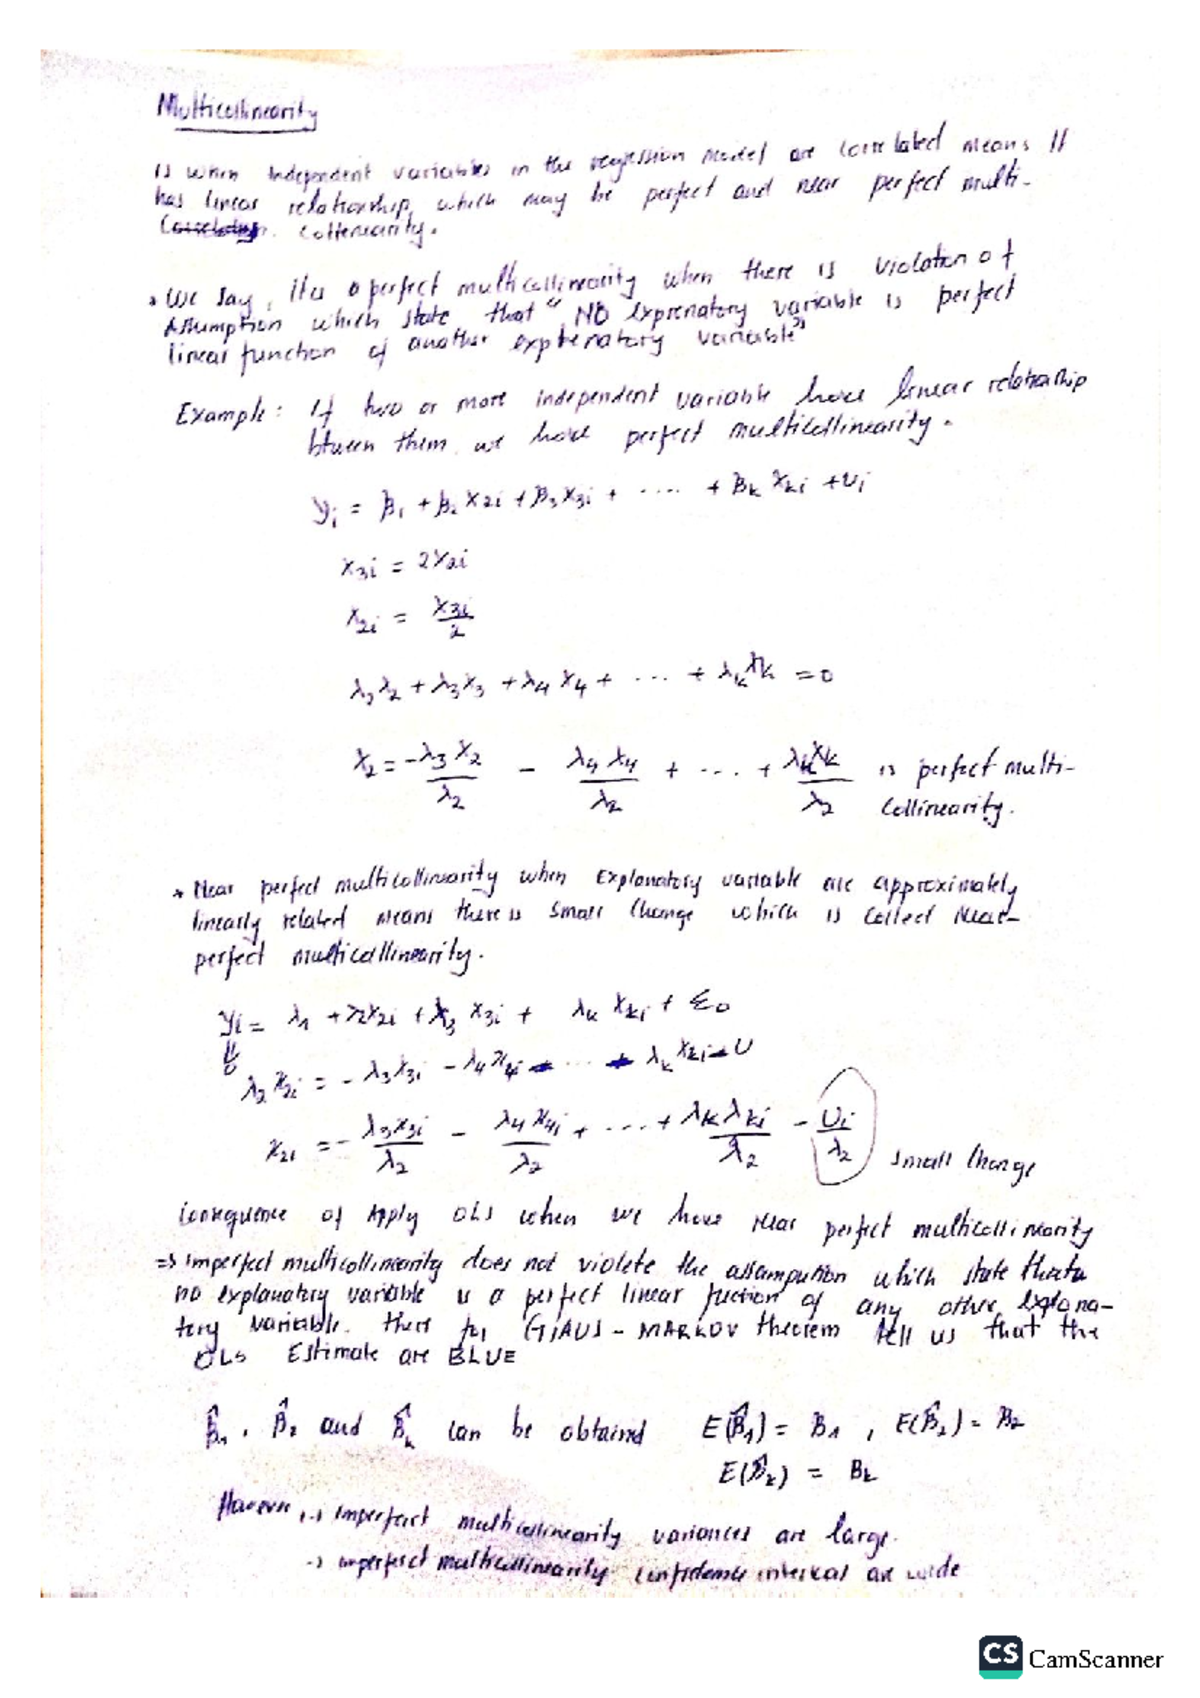 Multicollinearity
Is when Independent variables in the regression model are correlated means It
has linear relationship, which may be perfect and near perfect multi-
collenearity.
* We say, it is a perfect multicollinearity when there is violation of
Assumption which state that "NO Exprenatory variable is perfect
linear function of another exprenatory variable"
Example: If two or more independent variable have linear relationship
btween them we have perfect multicollinearity.
yi = B1 + B2 X2i + B3 X3i + .... + Bk Xki + Ui
X3i = 2X2i
X2i = X3i/2
λ2 λ2 + λ3 X3 + λ4 X4 + ... + λk Xk = 0
X2 = -λ3 X2/λ2 - λ4 X4/λ2 + ... + λk Xk/λ2 is perfect multi-
collinearity.
* Near perfect multicollinearity when Explanatory variable are approximately
linearly related means there is small change which is collect Near-
perfect multicollinearity.
yi = λ1 + λ2X2i + λ3 X3i + λk Xki + ε0
λ2 X2i = - λ3X3i - λ4X4i - ... - λk Xki - U
X2i = - λ3X3i/λ2 - λ4 X4i/λ2 + ... + λk λki/λ2 - Ui/λ2 small change
Consequence of Apply OLS when we have Near perfect multicollinearity
=> Imperfect multicollinearity does not violete the assampution which state thata
no explanatory variable is a perfect linear fuction of any other Explana-
tory variable. there for GAUS - MARKOV theorem tell us that the
OLS Estimate are BLUE
B̂1, B̂2 and B̂k can be obtained E(B̂1) = B1, E(B̂2) = B2
E(B̂k) = Bk
However, -> Imperfect multicollinearity variances are large.
-> imperfect multicollinearity confidence interval are wide
CS CamScanner